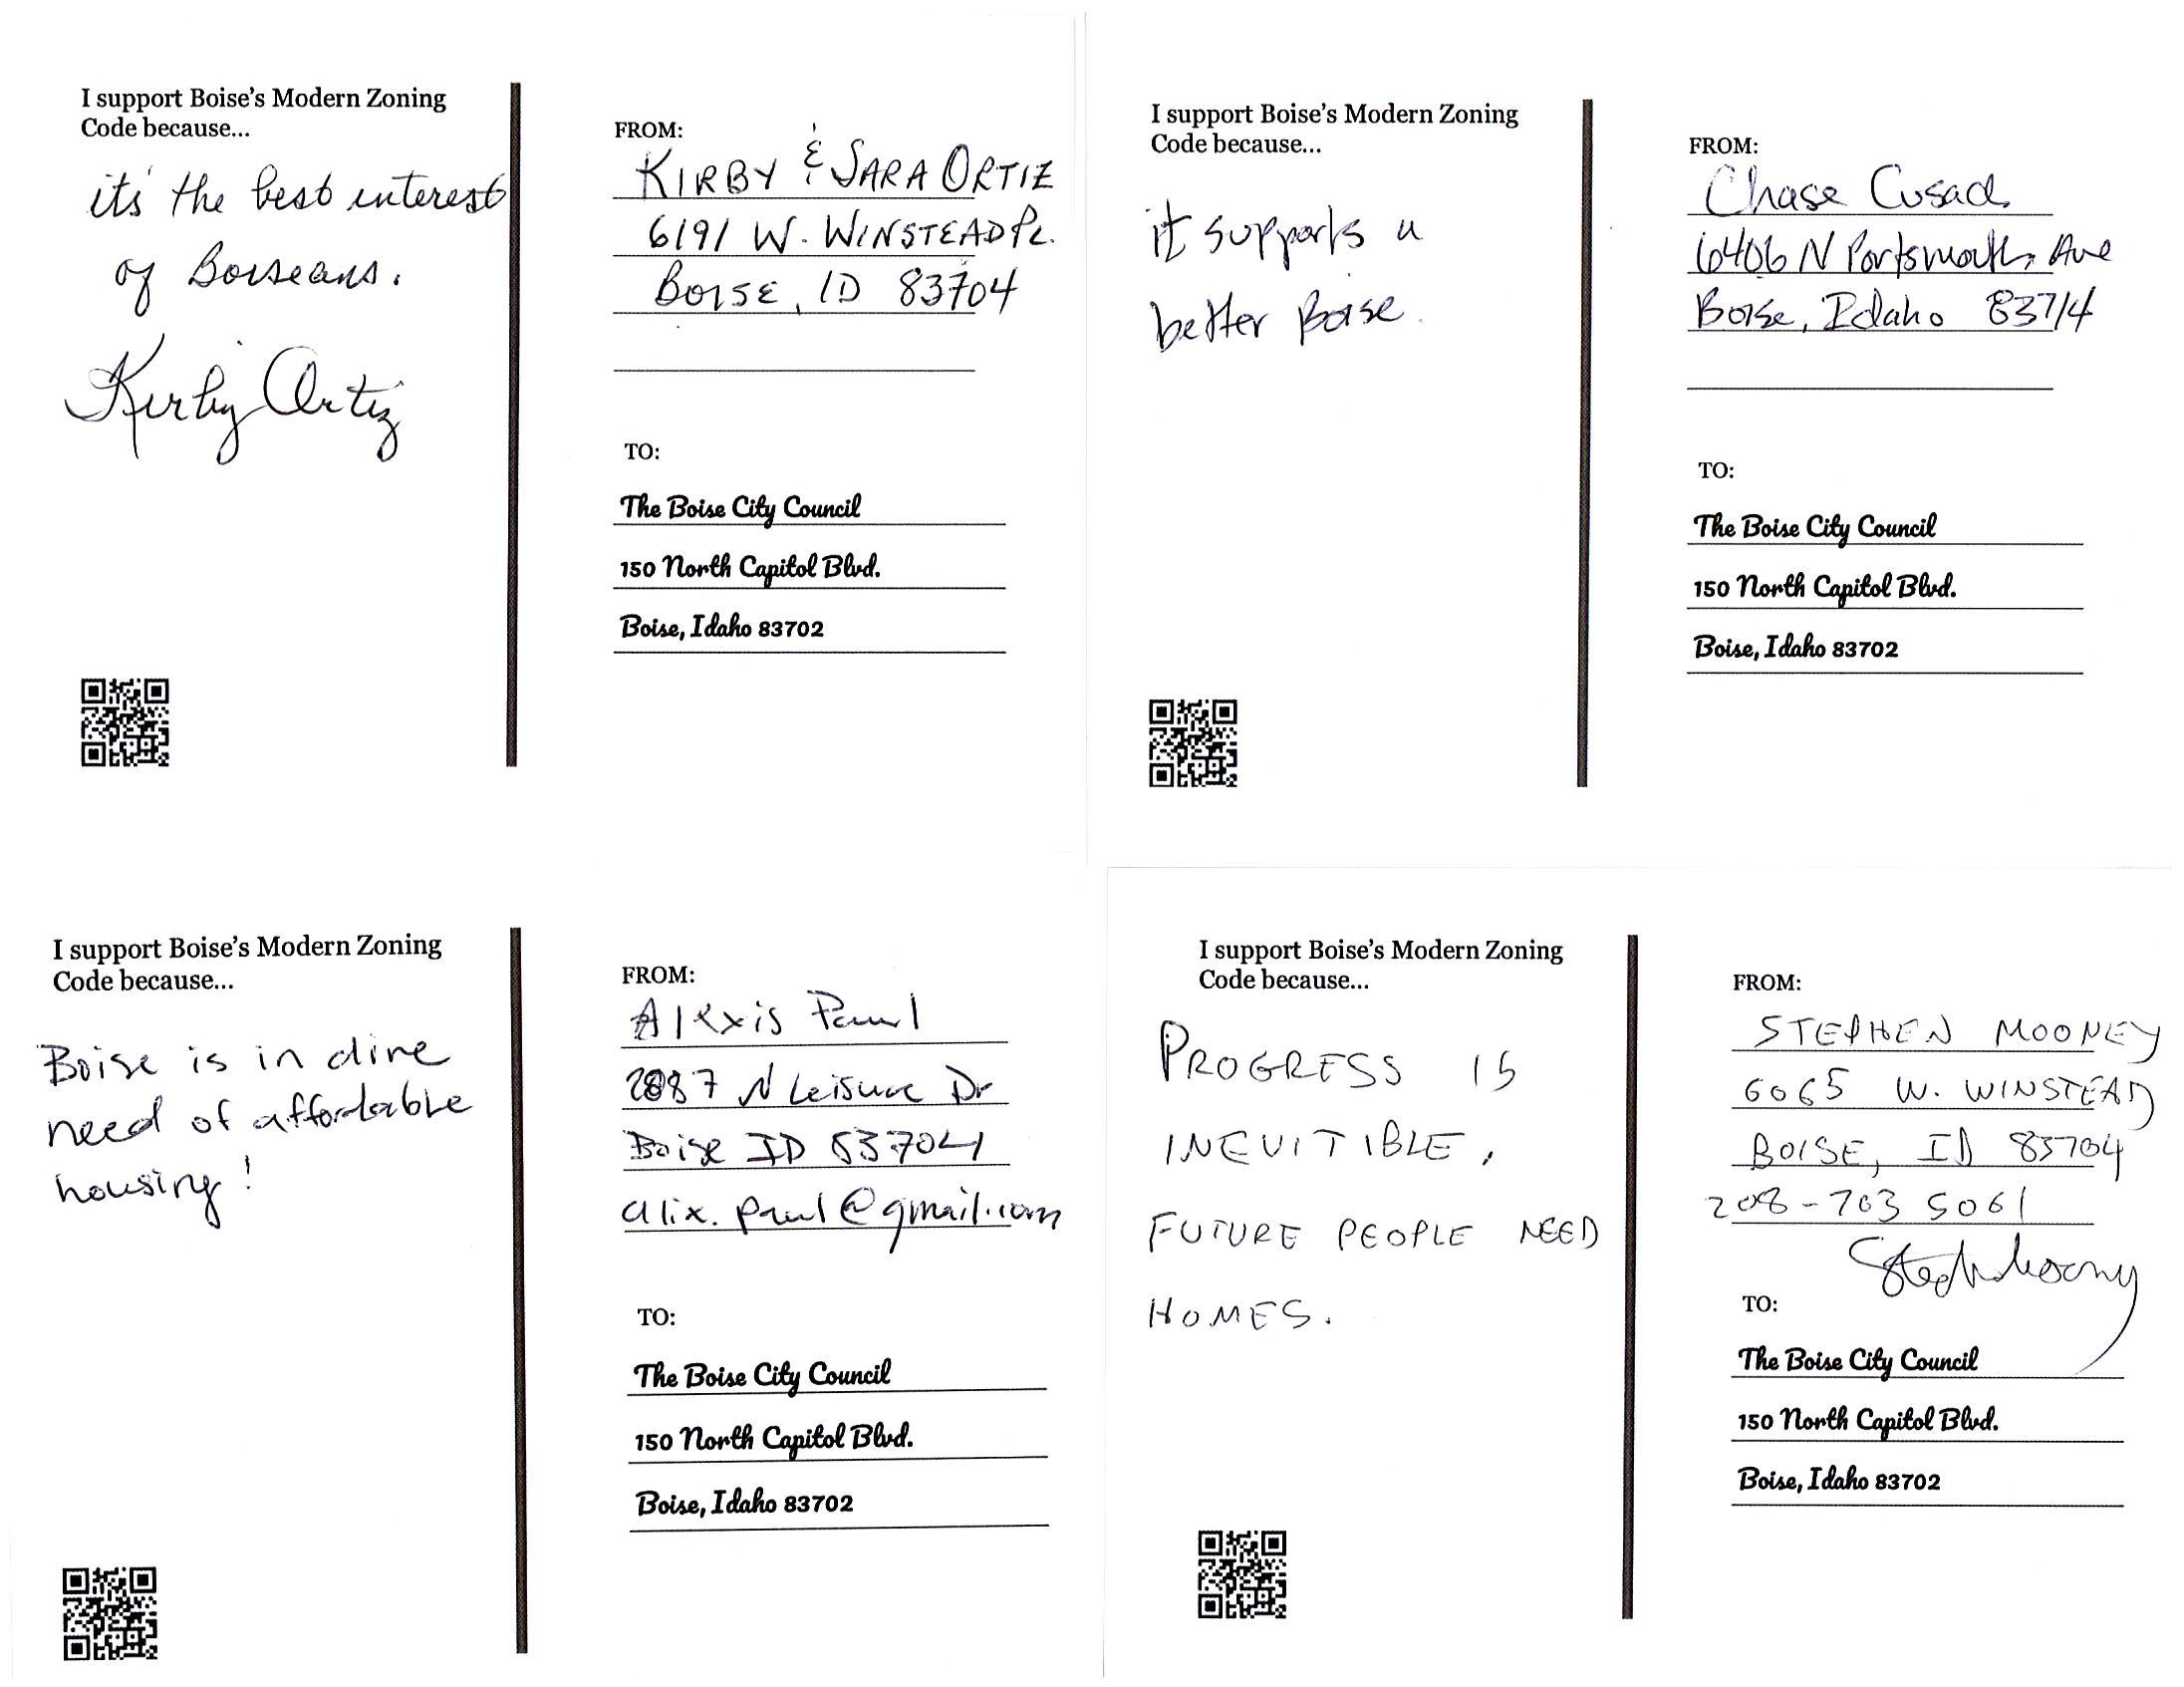 I support Boise's Modern Zoning
Code because...
its' the best interest
of Boiseans.
Kirby Ortiz
FROM:
KIRBY & SARA ORTIZ
6191 W. WINSTEAD PL.
BOISE, ID 83704
TO:
The Boise City Council
150 North Capitol Blvd.
Boise, Idaho 83702
I support Boise's Modern Zoning
Code because...
it supports a
better Boise.
FROM:
Chase Cusack
6406 N Portsmouth Ave
Boise, Idaho 83714
TO:
The Boise City Council
150 North Capitol Blvd.
Boise, Idaho 83702
I support Boise's Modern Zoning
Code because...
Boise is in dire
need of affordable
housing!
FROM:
Alexis Paul
N Leisure Dr
Boise ID 83704
alix.paul@gmail.com
TO:
The Boise City Council
150 North Capitol Blvd.
Boise, Idaho 83702
I support Boise's Modern Zoning
Code because...
PROGRESS IS
INEVITIBLE,
FUTURE PEOPLE NEED
HOMES.
FROM:
STEPHEN MOONEY
6065 W. WINSTEAD
BOISE, ID 83704
208-703 5061
TO:
The Boise City Council
150 North Capitol Blvd.
Boise, Idaho 83702